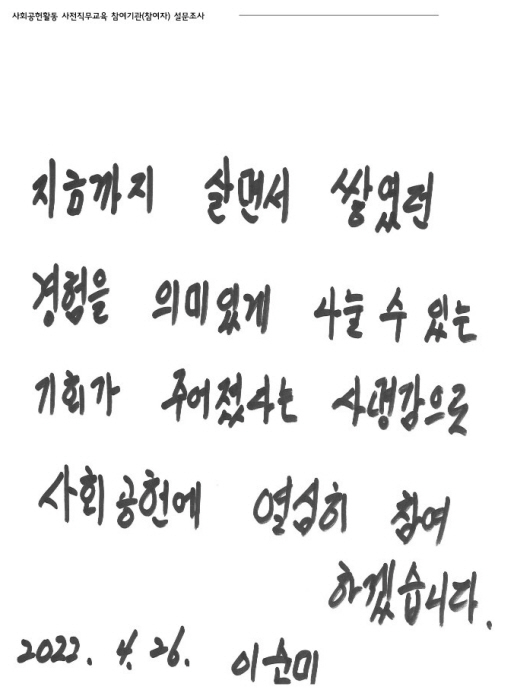 사회공헌활동 사전직무교육 참여기관(참여자) 설문조사
지금까지 살면서 쌓였던
경험을 의미있게 나눌 수 있는
기회가 주어졌다는 사명감으로
사회공헌에 열심히 참여
하겠습니다.
2022. 4. 26. 이순미